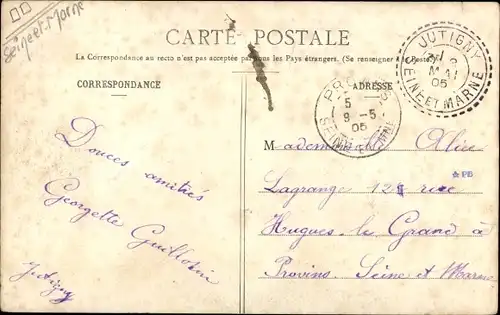 Seine et Marne
CARTE POSTALE
La Correspondance au recto n'est pas acceptée par tous les Pays étrangers. (Se renseigner à la Poste)
CORRESPONDANCE
ADRESSE
JUTIGNY
MAI
05
SEINE ET MARNE
5
9 -5
05
Mademoiselle Alice
Lagrange 12 rue
Hugues le Grand à
Provins. Seine et Marne
Douces amitiés
Georgette Guillotin
Jutigny